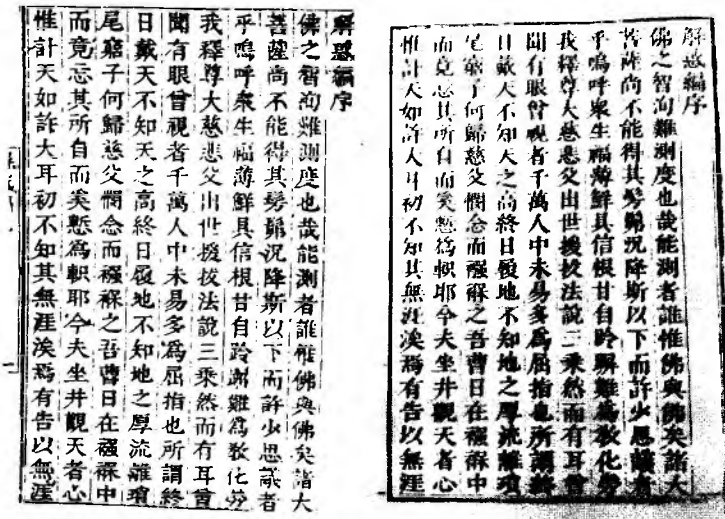 解惑編序
佛之智海難測度也哉能測者誰惟佛與佛矣諸大
菩薩尚不能得其髣髴況降斯以下而許少思議者
乎嗚呼衆生福薄鮮具信根甘自跉跰難爲教化勞
我釋尊大慈悲父出世援拔法說三乘然而有耳曾
聞有眼曾視者千萬人中未易多爲屈指也所謂終
日戴天不知天之高終日履地不知地之厚流離瑣
尾窮子何歸慈父憫念而襁褓之吾曹日在襁褓中
而竟忘其所自而奚慙爲軹耶今夫坐井觀天者心
惟計天如許大耳初不知其無涯涘焉有告以無涯
解惑編序
佛之智海難測度也哉能測者誰惟佛與佛矣諸大
菩薩尚不能得其髣髴況降斯以下而許少思議者
乎嗚呼衆生福薄鮮具信根甘自跉跰難爲教化勞
我釋尊大慈悲父出世援拔法說三乘然而有耳曾
聞有眼曾視者千萬人中未易多爲屈指也所謂終
日戴天不知天之高終日履地不知地之厚流離瑣
尾窮子何歸慈父憫念而襁褓之吾曹日在襁褓中
而竟忘其所自而奚慙爲軹耶今夫坐井觀天者心
惟計天如許大耳初不知其無涯涘焉有告以無涯